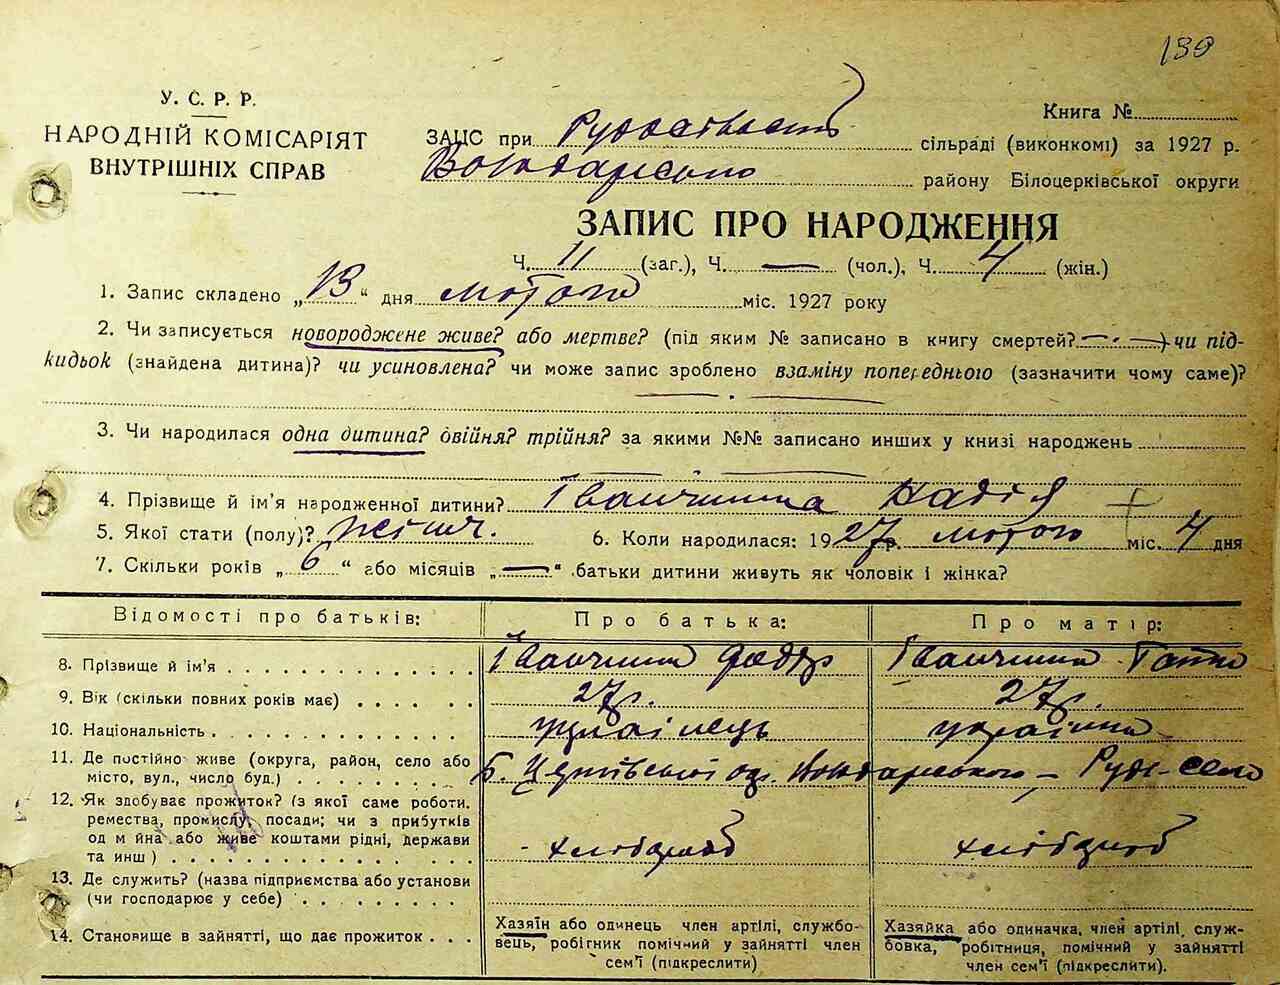 139
У. С. Р. Р.
НАРОДНІЙ КОМІСАРІЯТ
ВНУТРІШНІХ СПРАВ
Книга №
ЗАЦС при сільраді (виконкомі) за 1927 р.
району Білоцерківської округи
ЗАПИС ПРО НАРОДЖЕННЯ
Ч. 11 (заг.), Ч. — (чол.), Ч. 4 (жін.)
1. Запис складено „13“ дня лютого міс. 1927 року
2. Чи записується новороджене живе? або мертве? (під яким № записано в книгу смертей? — · —) чи під-
кидьок (знайдена дитина)? чи усиновлена? чи може запис зроблено взаміну попереднього (зазначити чому саме)?
3. Чи народилася одна дитина? двійня? трійня? за якими №№ записано инших у книзі народжень
4. Прізвище й ім'я народженної дитини? Іванчишина Надія
5. Якої стати (полу)? жіноч. 6. Коли народилася: 1927 р. лютого міс. 4 дня
7. Скільки років „6“ або місяців „—“ батьки дитини живуть як чоловік і жінка?
Відомості про батьків: Про батька: Про матір:
8. Прізвище й ім'я Іванчишин Іванчишина Ганна
9. Вік (скільки повних років має) 27 р. 27 р.
10. Національність українець українка
11. Де постійно живе (округа, район, село або
місто, вул., число буд.) Б. Церківської окр. Володарського – Руде-село
12. Як здобуває прожиток? (з якої саме роботи,
ремества, промислу, посади; чи з прибутків
од майна або живе коштами рідні, держави
та инш) - хлібороб хлібороб
13. Де служить? (назва підприємства або установи
(чи господарює у себе)
14. Становище в зайнятті, що дає прожиток
Хазяїн або одинець член артілі, службо-
вець, робітник помічний у зайнятті член
сем'ї (підкреслити)
Хазяйка або одиначка, член артілі, служ-
бовка, робітниця, помічний у зайнятті
член сем'ї (підкреслити).